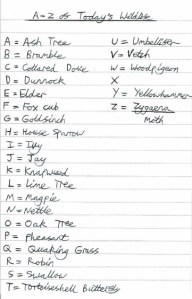 A-Z of Today's Wildlife
A = Ash Tree
B = Bramble
C = Collared Dove
D = Dunnock
E = Elder
F = Fox cub
G = Goldfinch
H = House Sparrow
I = Ivy
J = Jay
K = Knapweed
L = Lime Tree
M = Magpie
N = Nettle
O = Oak Tree
P = Pheasant
Q = Quaking Grass
R = Robin
S = Swallow
T = Tortoiseshell Butterfly
U = Umbellifer
V = Vetch
W = Woodpigeon
X
Y = Yellowhammer
Z = Zygaena
Moth